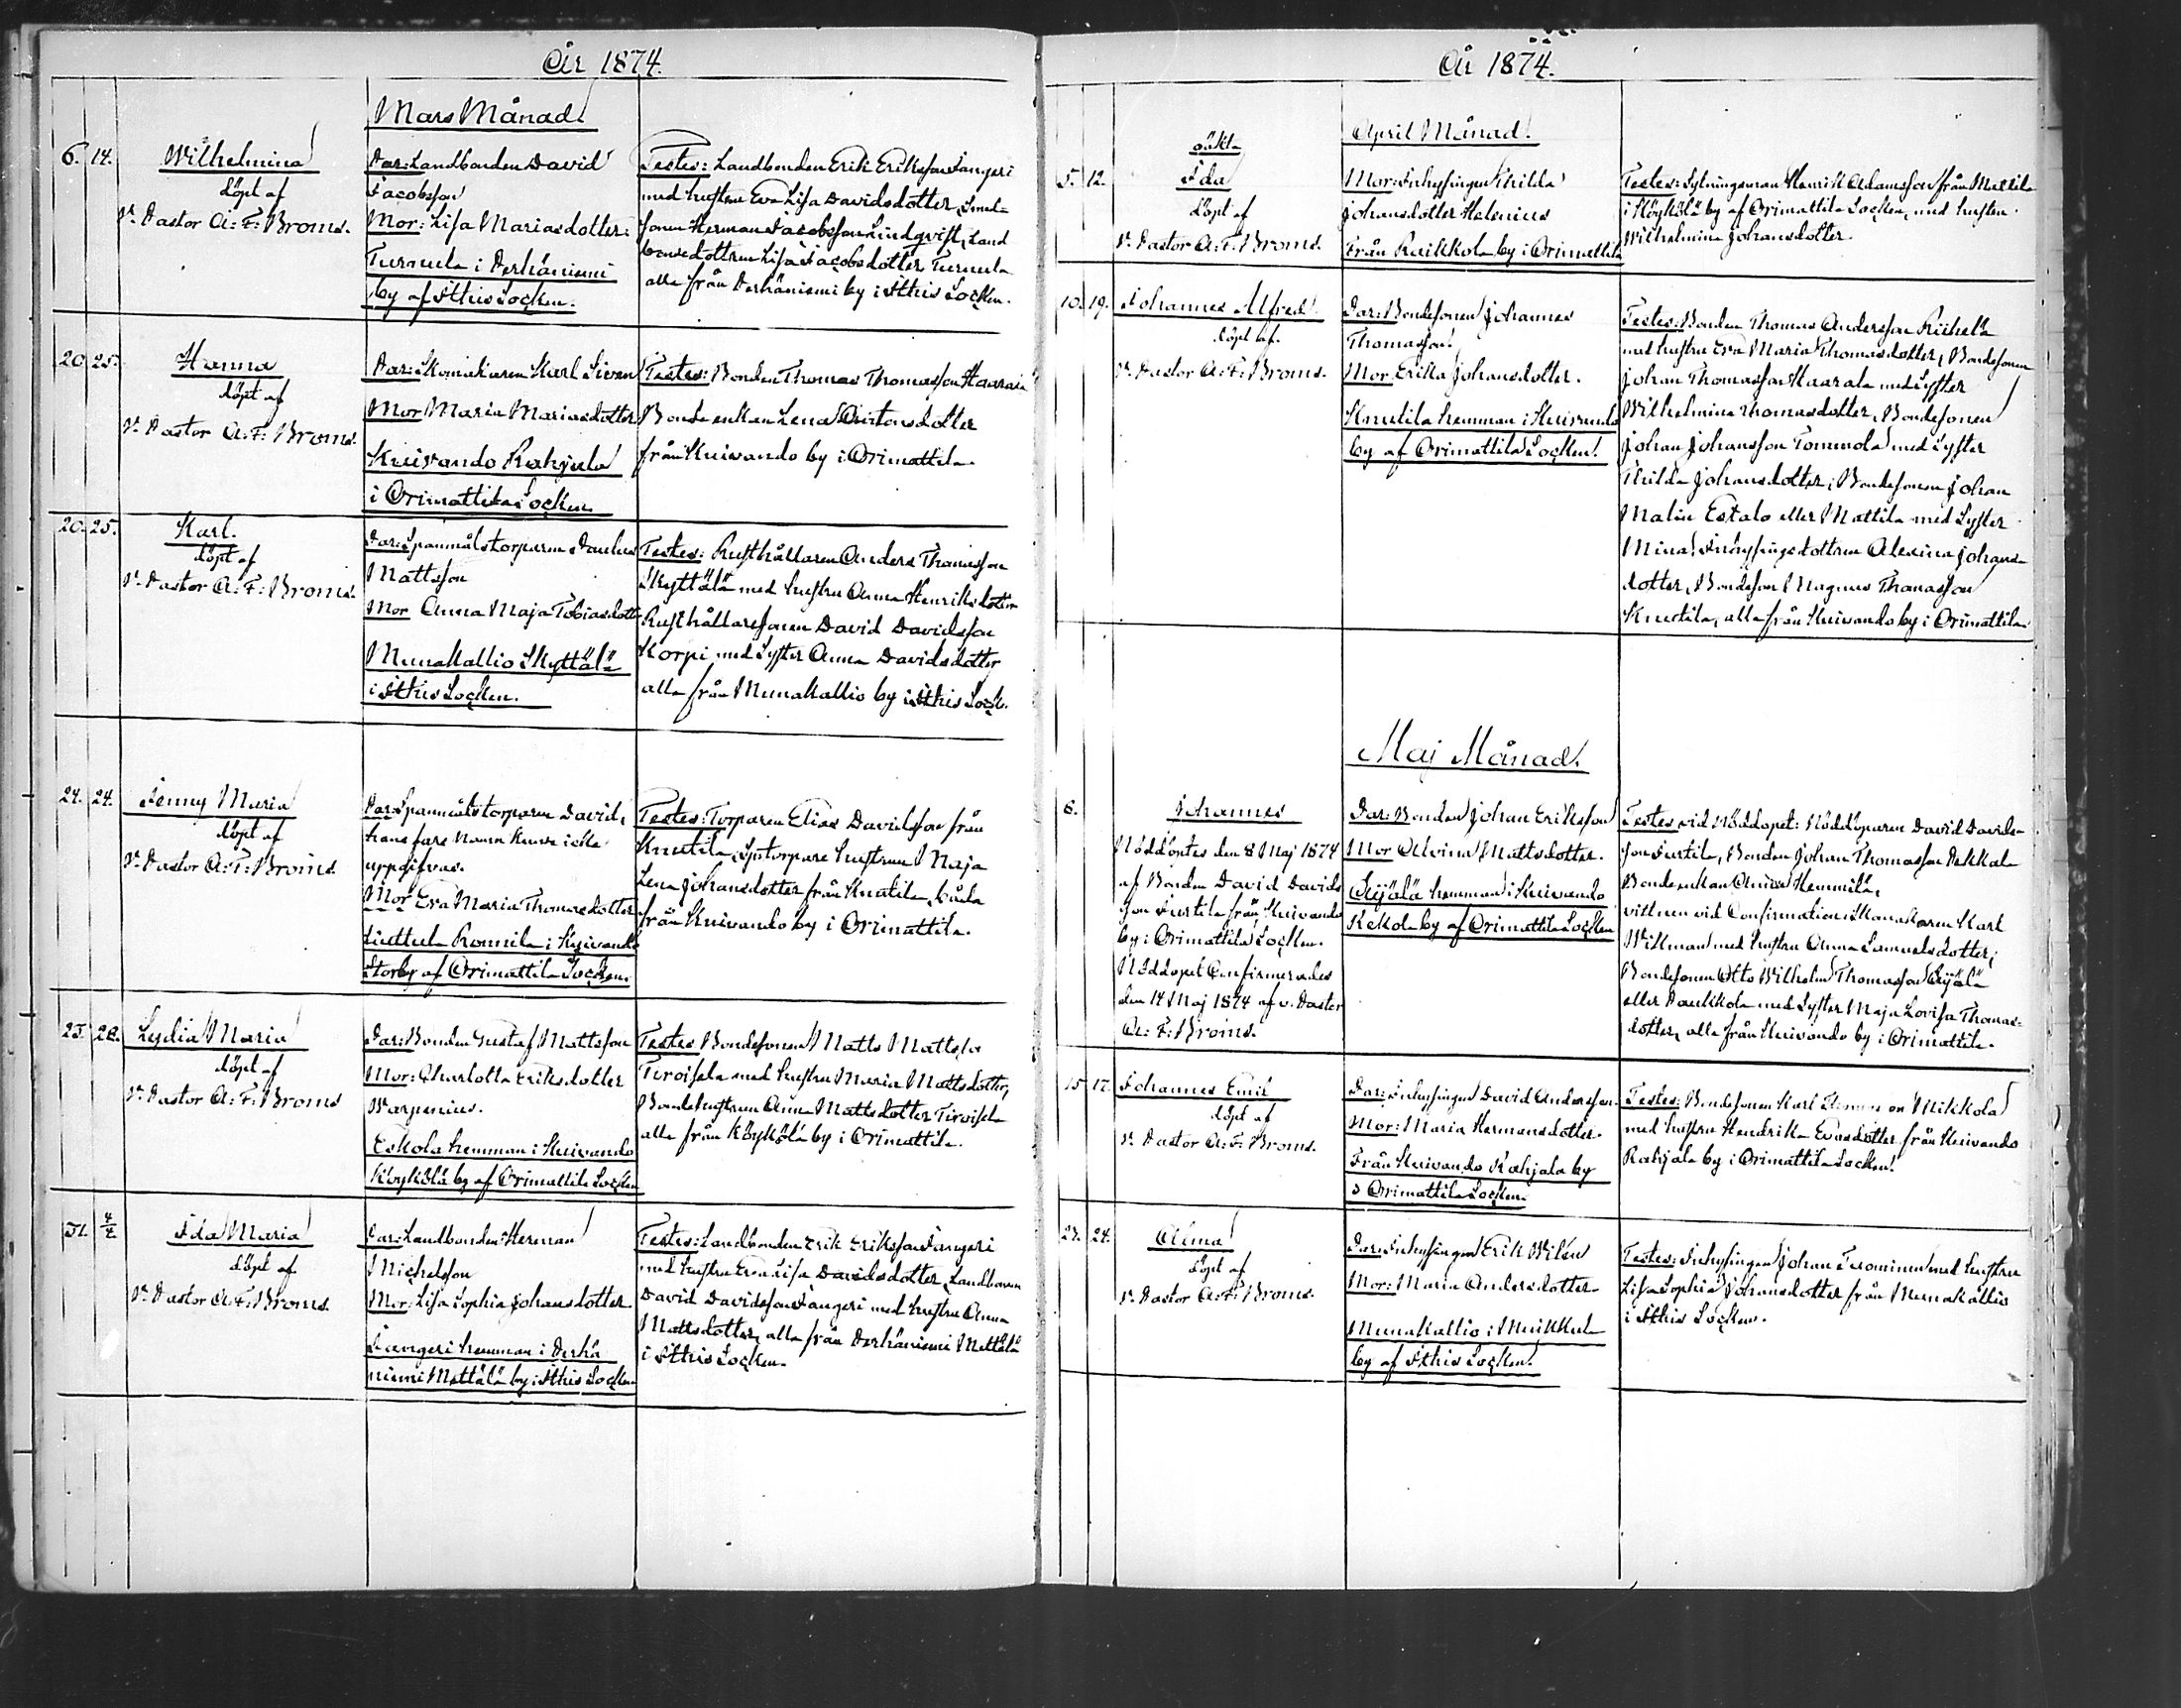 År 1874.
Mars Månad.
6. 14. Wilhelmina
döpt af
V. Pastor A: F: Broms.
Par: Landbonden David
Jacobsson
Mor: Lisa Mariasdotter
Turunula i Perhäniemi
by af Ithis Socken.
Testes: Landbonden Erik Eriksson Jangeri
med hustru Eva Lisa Davidsdotter, Smed-
sonen Herman Jacobsson Lindqvist, Land
bondedottren Lisa Jacobsdotter
alla från Perhäniemi by i Ithis Socken.
20. 25. Hanna
döpt af
V. Pastor A: F: Broms.
Par: Skomakaren Karl Siren
Mor Maria Mariasdotter
Kuivando Rahjala
i Orimattila Socken
Testes: Bonden Thomas Thomasson
Bondeenkan Lena
från Kuivando by i Orimattila.
20. 25. Karl.
döpt af
V. Pastor A: F: Broms.
Par: Spanmålstorparen Paulus
Mattsson
Mor Anna Maja Tobiasdotter
Munakallio Skyttälä
i Ithis Socken.
Testes: Rusthållaren Anders Thomasson
Skyttälä med hustru Anna Henriksdotter
Rusthållaresonen David Davidsson
Korpi med Syster Anna Davidsdotter
alla från Munakallio by i Ithis Sock.
24. 24. Jenny Maria
döpt af
V. Pastor A: F: Broms.
Par Spanmålstorparen David,
hans fars namn kunde icke
uppgifvas.
Mor Eva Maria Thomasdotter
Ronnila i Kuivando
Storby af Orimattila Socken.
Testes: Torparen Elias Davidsson från
Knutila, Sptorpare hustrun Maja
Lena Johansdotter från Knutila, båda
från Kuivando by i Orimattila.
25. 28. Lydia Maria
döpt af
V. Pastor A: F: Broms
Par: Bonden Gustaf Mattsson
Mor: Charlotta Eriksdotter
Warpenius.
Eskola hemman i Kuivando
Köylkölä by af Orimattila Socken
Testes Bondesonen Matts
med hustru Maria Mattsdotter,
Bondehustrun Anna Mattsdotter
alla från Köykölä by i Orimattila.
31. 4/4 Ida Maria
döpt af
V. Pastor A: F: Broms.
Par: Landbonden Herman
Michelsson
Mor: Lisa Sophia Johansdotter.
Jangeri hemman i Perhä
niemi Mettälä by i Ithis Socken.
Testes: Landbonden Erik Eriksson Jangeri
med hustru Eva Lisa Davidsdotter, Landbonden
David Davidsson Jangeri med hustru Anna
Mattsdotter, alla från Perhäniemi Mettälä
i Ithis Socken.
År 1874.
April Månad.
oäkta
5. 12. Ida
döpt af
V. Pastor A: F: Broms.
Mor: Inhysingen Thilda
Johansdotter Helenius
Från Raikkola by i Orimattila
Testes: Sytningsman Henrik Adamsson från Mattila
i Köykölä by af Orimattila Socken, med hustru
Wilhelmina Johansdotter.
10. 19. Johannes Alfred
döpt af.
V. Pastor A: F: Broms.
Par: Bondesonen Johannes
Thomasson
Mor Erika Johansdotter.
Knutila hemman i Kuivando
by af Orimattila Socken.
Testes: Bonden Thomas Andersson
med hustru Eva Maria Thomasdotter, Bondesonen
Johan Thomasson Haarala med Syster
Wilhelmina Thomasdotter, Bondesonen
Johan Johansson Tommola med Syster
Thilda Johansdotter, Bondesonen Johan
Malin Estalo eller Mattila med Syster
Mina, Alexina Johans-
dotter, Bondeson Magnus Thomasson
Knutila, alla från Kuivando by i Orimattila.
Maj Månad.
8. Johannes
Nöddöptes den 8 Maj 1874
af Bonden David Davids
son från Kuivando
by i Orimattila Socken.
Nöddopet Confirmerades
den 14 Maj 1874 af v. Pastor
A: F: Broms.
Par: Bonden Johan Eriksson
Mor Mattsdotter.
hemman i Kuivando
Kekola by af Orimattila Socken
Testes vid Nöddopet: Nöddöparen David Davids-
son, Bonden Johan Thomasson
Bondeenkan Hemmilä,
vittnen vid Confirmation: Karl
Wikman med hustru Anna Samuelsdotter,
Bondesonen Otto Wilhelm Thomasson
eller med Syster Maja Lovisa Thomas-
dotter, alla från Kuivando by i Orimattila.
15. 17. Johannes Emil
döpt af
V. Pastor A: F: Broms.
Par: Inhysingen David Andersson.
Mor: Maria Hermansdotter.
Från Kuivando Rahjala by
i Orimattila Socken.
Testes: Bondesonen Karl Mikkola
med hustru Hendrika Evasdotter från Kuivando
Rahjala by i Orimattila Socken.
23. 24. Alma
döpt af
V. Pastor A: F: Broms.
Par: Inhysingen Erik Wilén
Mor: Maria Andersdotter
Munakallio i
by af Ithis Socken.
Testes: Inhysingen Johan med hustru
Lisa Sophia Johansdotter från Munakallio
i Ithis Socken.